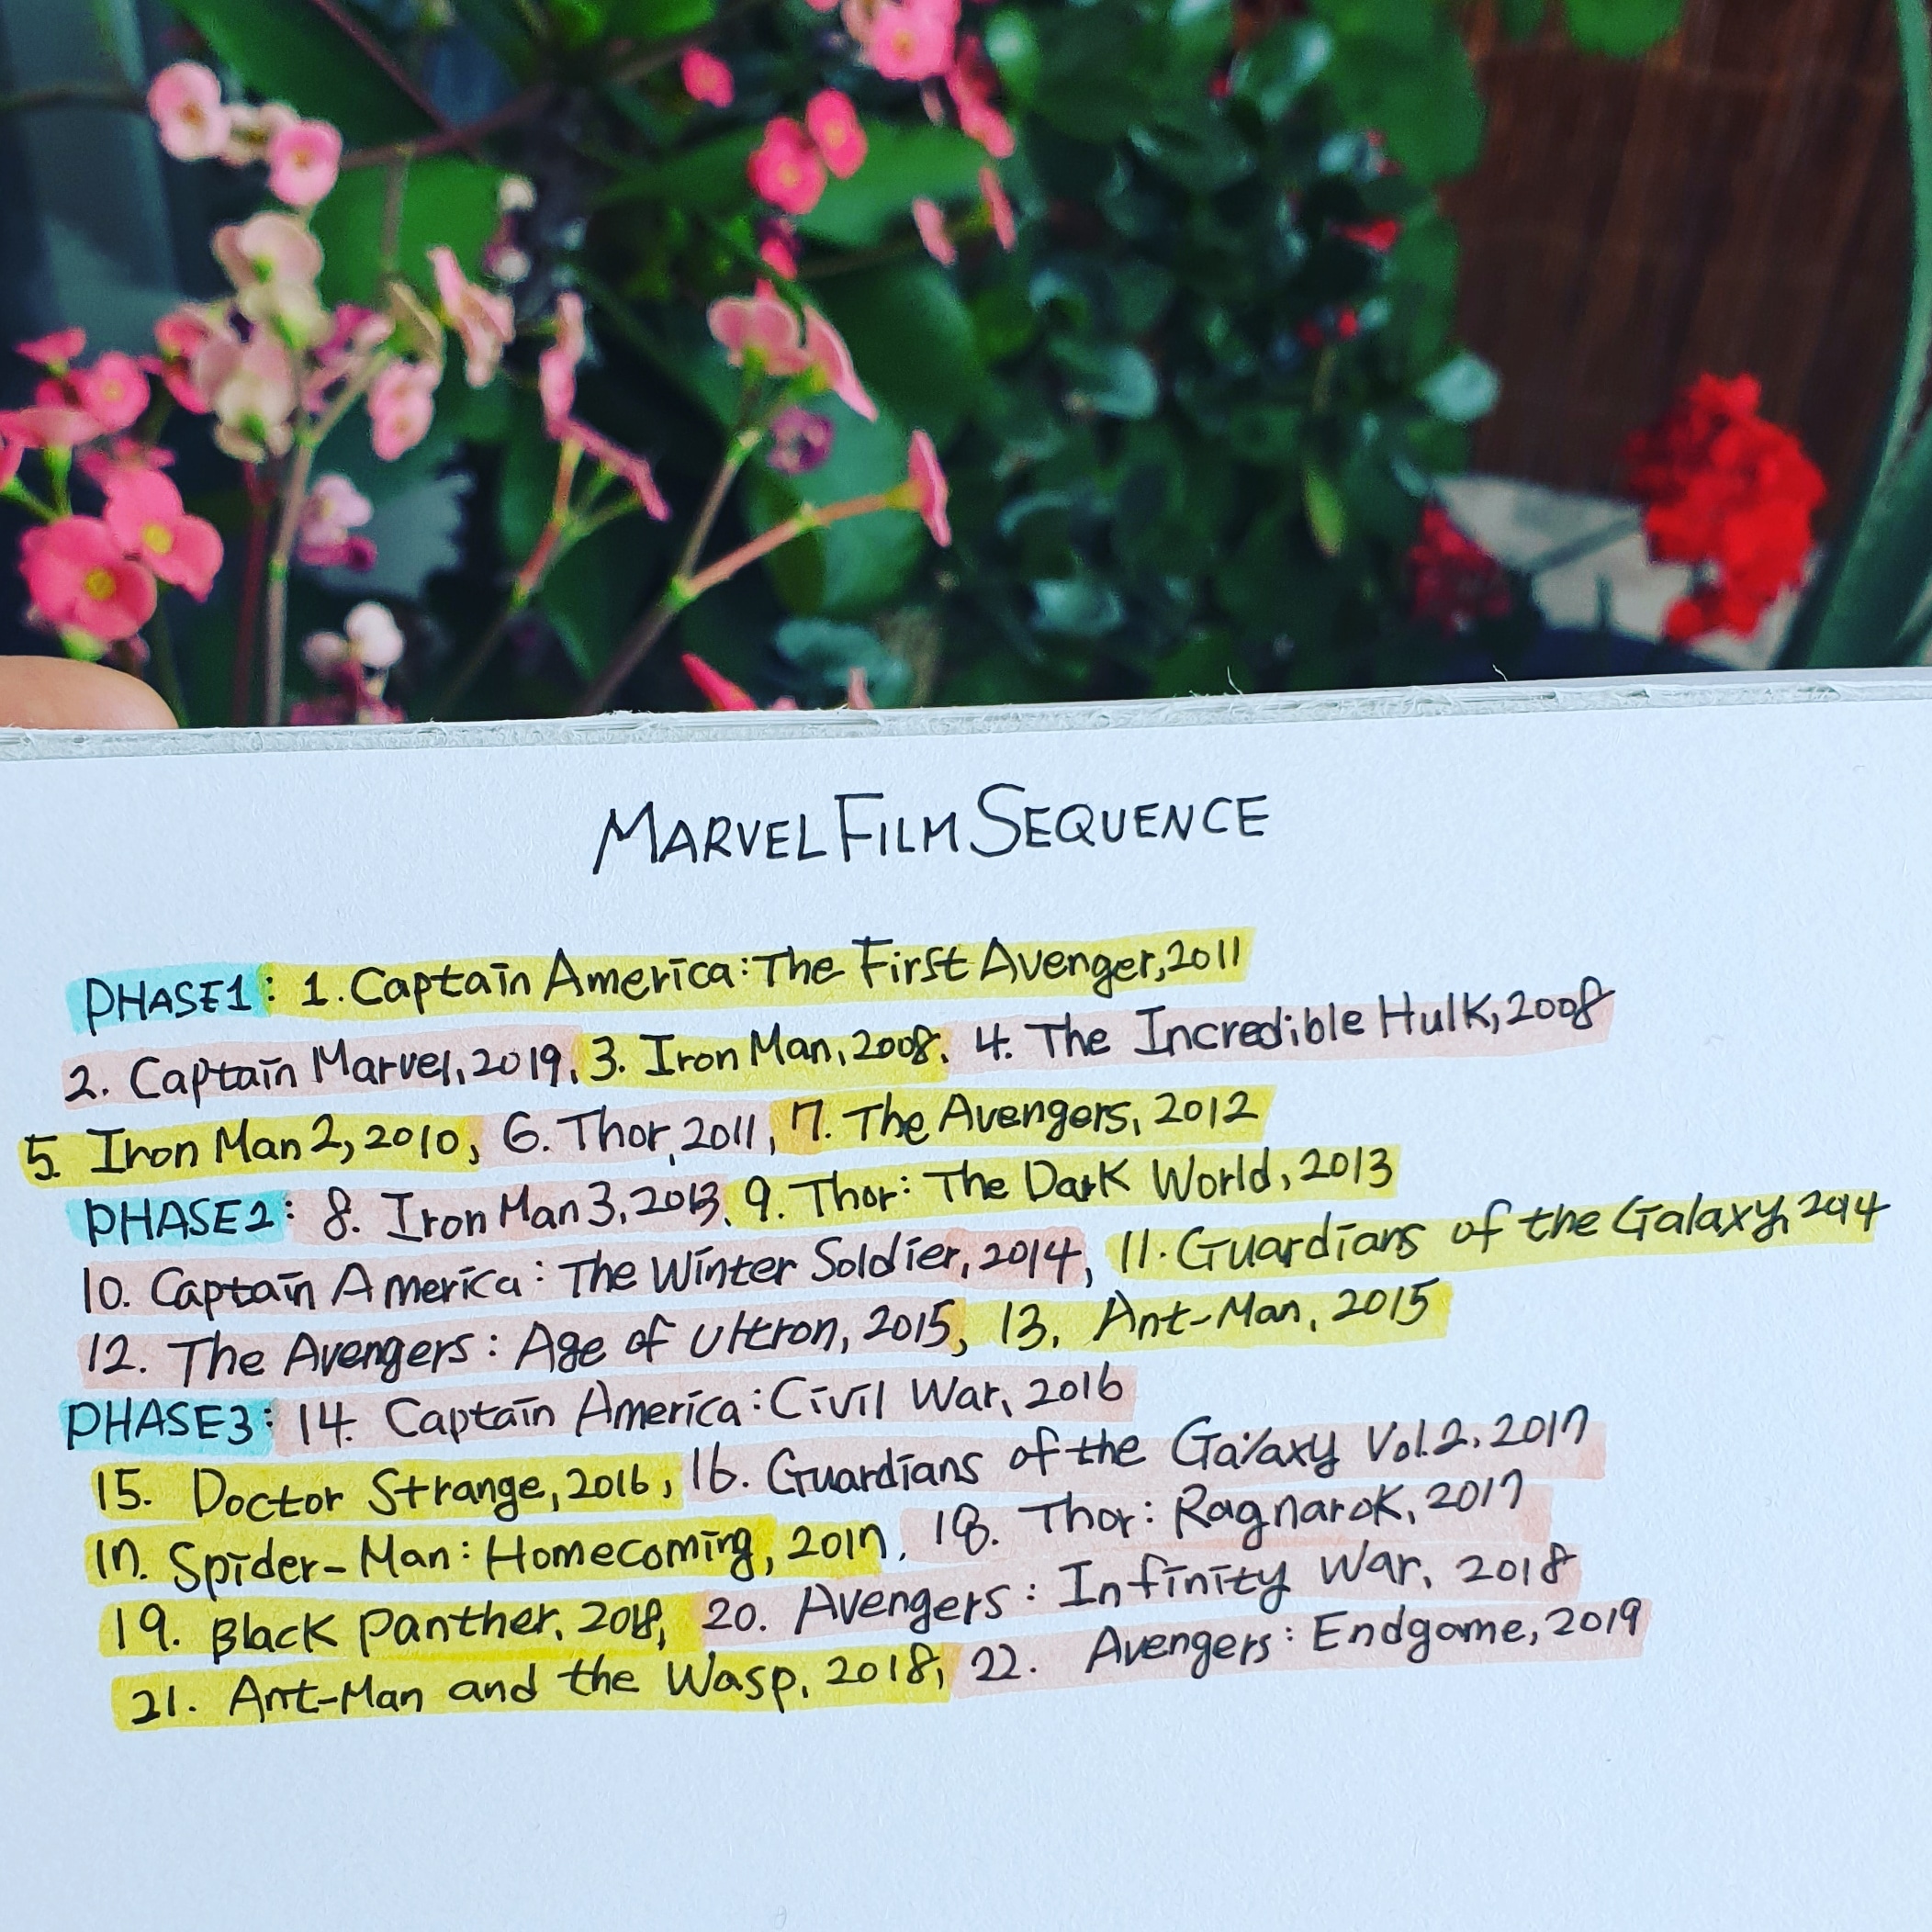 MARVEL FILM SEQUENCE
PHASE1: 1. Captain America: The First Avenger, 2011
2. Captain Marvel, 2019, 3. Iron Man, 2008, 4. The Incredible Hulk, 2008
5. Iron Man 2, 2010, 6. Thor, 2011, 7. The Avengers, 2012
PHASE2: 8. Iron Man 3, 2013, 9. Thor: The Dark World, 2013
10. Captain America: The Winter Soldier, 2014, 11. Guardians of the Galaxy, 2014
12. The Avengers: Age of Ultron, 2015, 13. Ant-Man, 2015
PHASE3: 14. Captain America: Civil War, 2016
15. Doctor Strange, 2016, 16. Guardians of the Galaxy Vol.2, 2017
17. Spider-Man: Homecoming, 2017, 18. Thor: Ragnarok, 2017
19. Black Panther, 2018, 20. Avengers: Infinity War, 2018
21. Ant-Man and the Wasp, 2018, 22. Avengers: Endgame, 2019